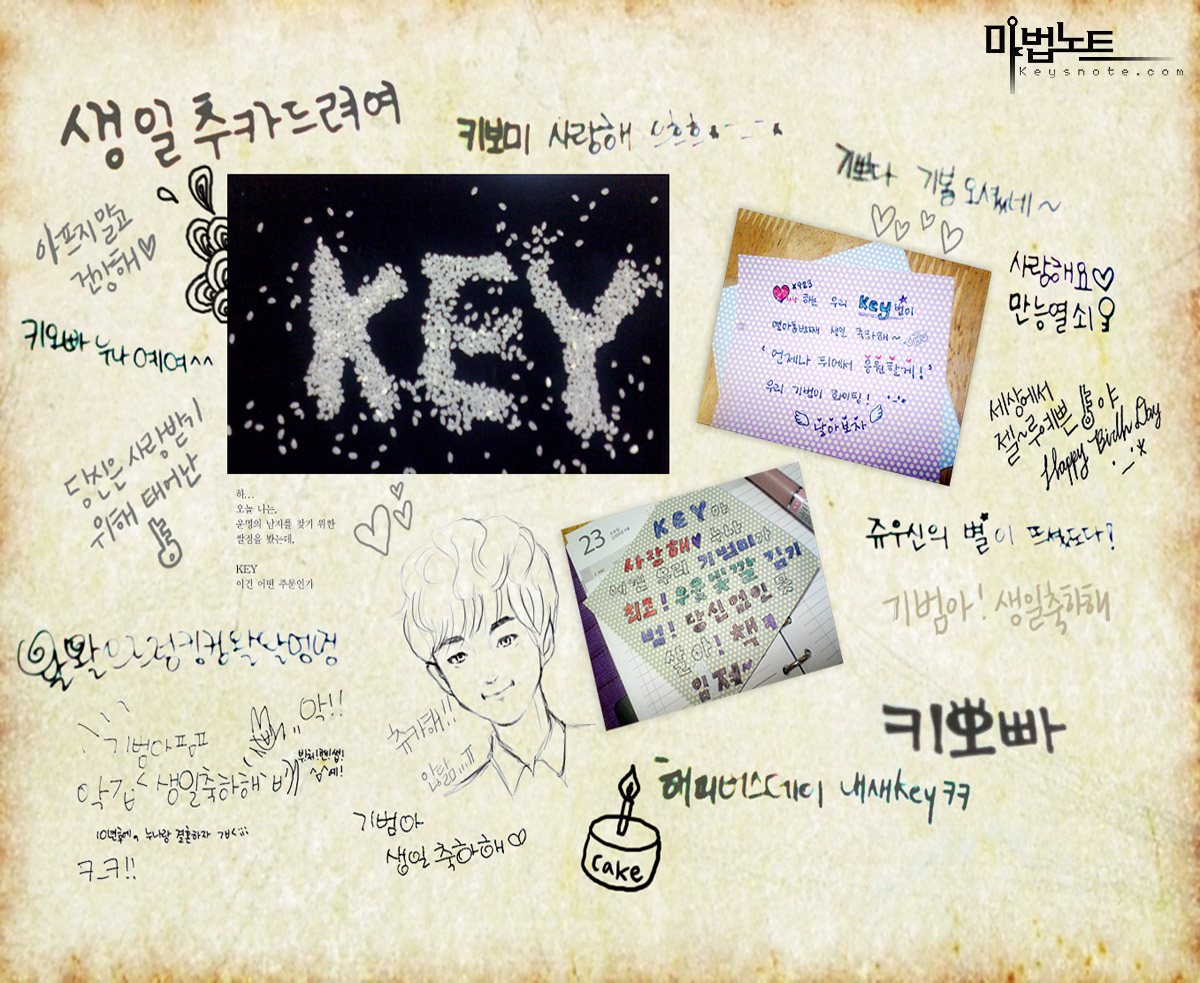 마법노트
Keysnote.com
생일추카드려여
키보미 사랑해 으흐흐
기쁘다 기봄 오셨네~
아프지말고
건강해♡
KEY
♥x923
하는 우리 Key범이
번째 생일 축하해~
'언제나 뒤에서 응원할게!'
우리 기범이 화이팅!
날아보자
사랑해요♡
만능열쇠
키오빠 누나예여^^
세상에서
젤~루예쁜 야
Happy Birth Day
당신은 사랑받기
위해 태어난
하...
오늘 나는,
운명의 남자를 찾기 위한
쌀점을 봤는데,
KEY
이건 어떤 주문인가
23
KEY야
사랑해♥ 누나
우리 기범미가
최고! 우윤빛깔 김기
범! 당신없인 못
살아! 책
임져~
쥬우신의 별★이 뜨셨도다?
기범아! 생일축하해
기범아
악!!
생일축하해
10년후에 누나랑 결혼하자
ㅋ_ㅋ!!
츄카해!!
키뽀빠
기범아
생일축하해♡
cake
해피버스데이 내새key ㅋㅋ